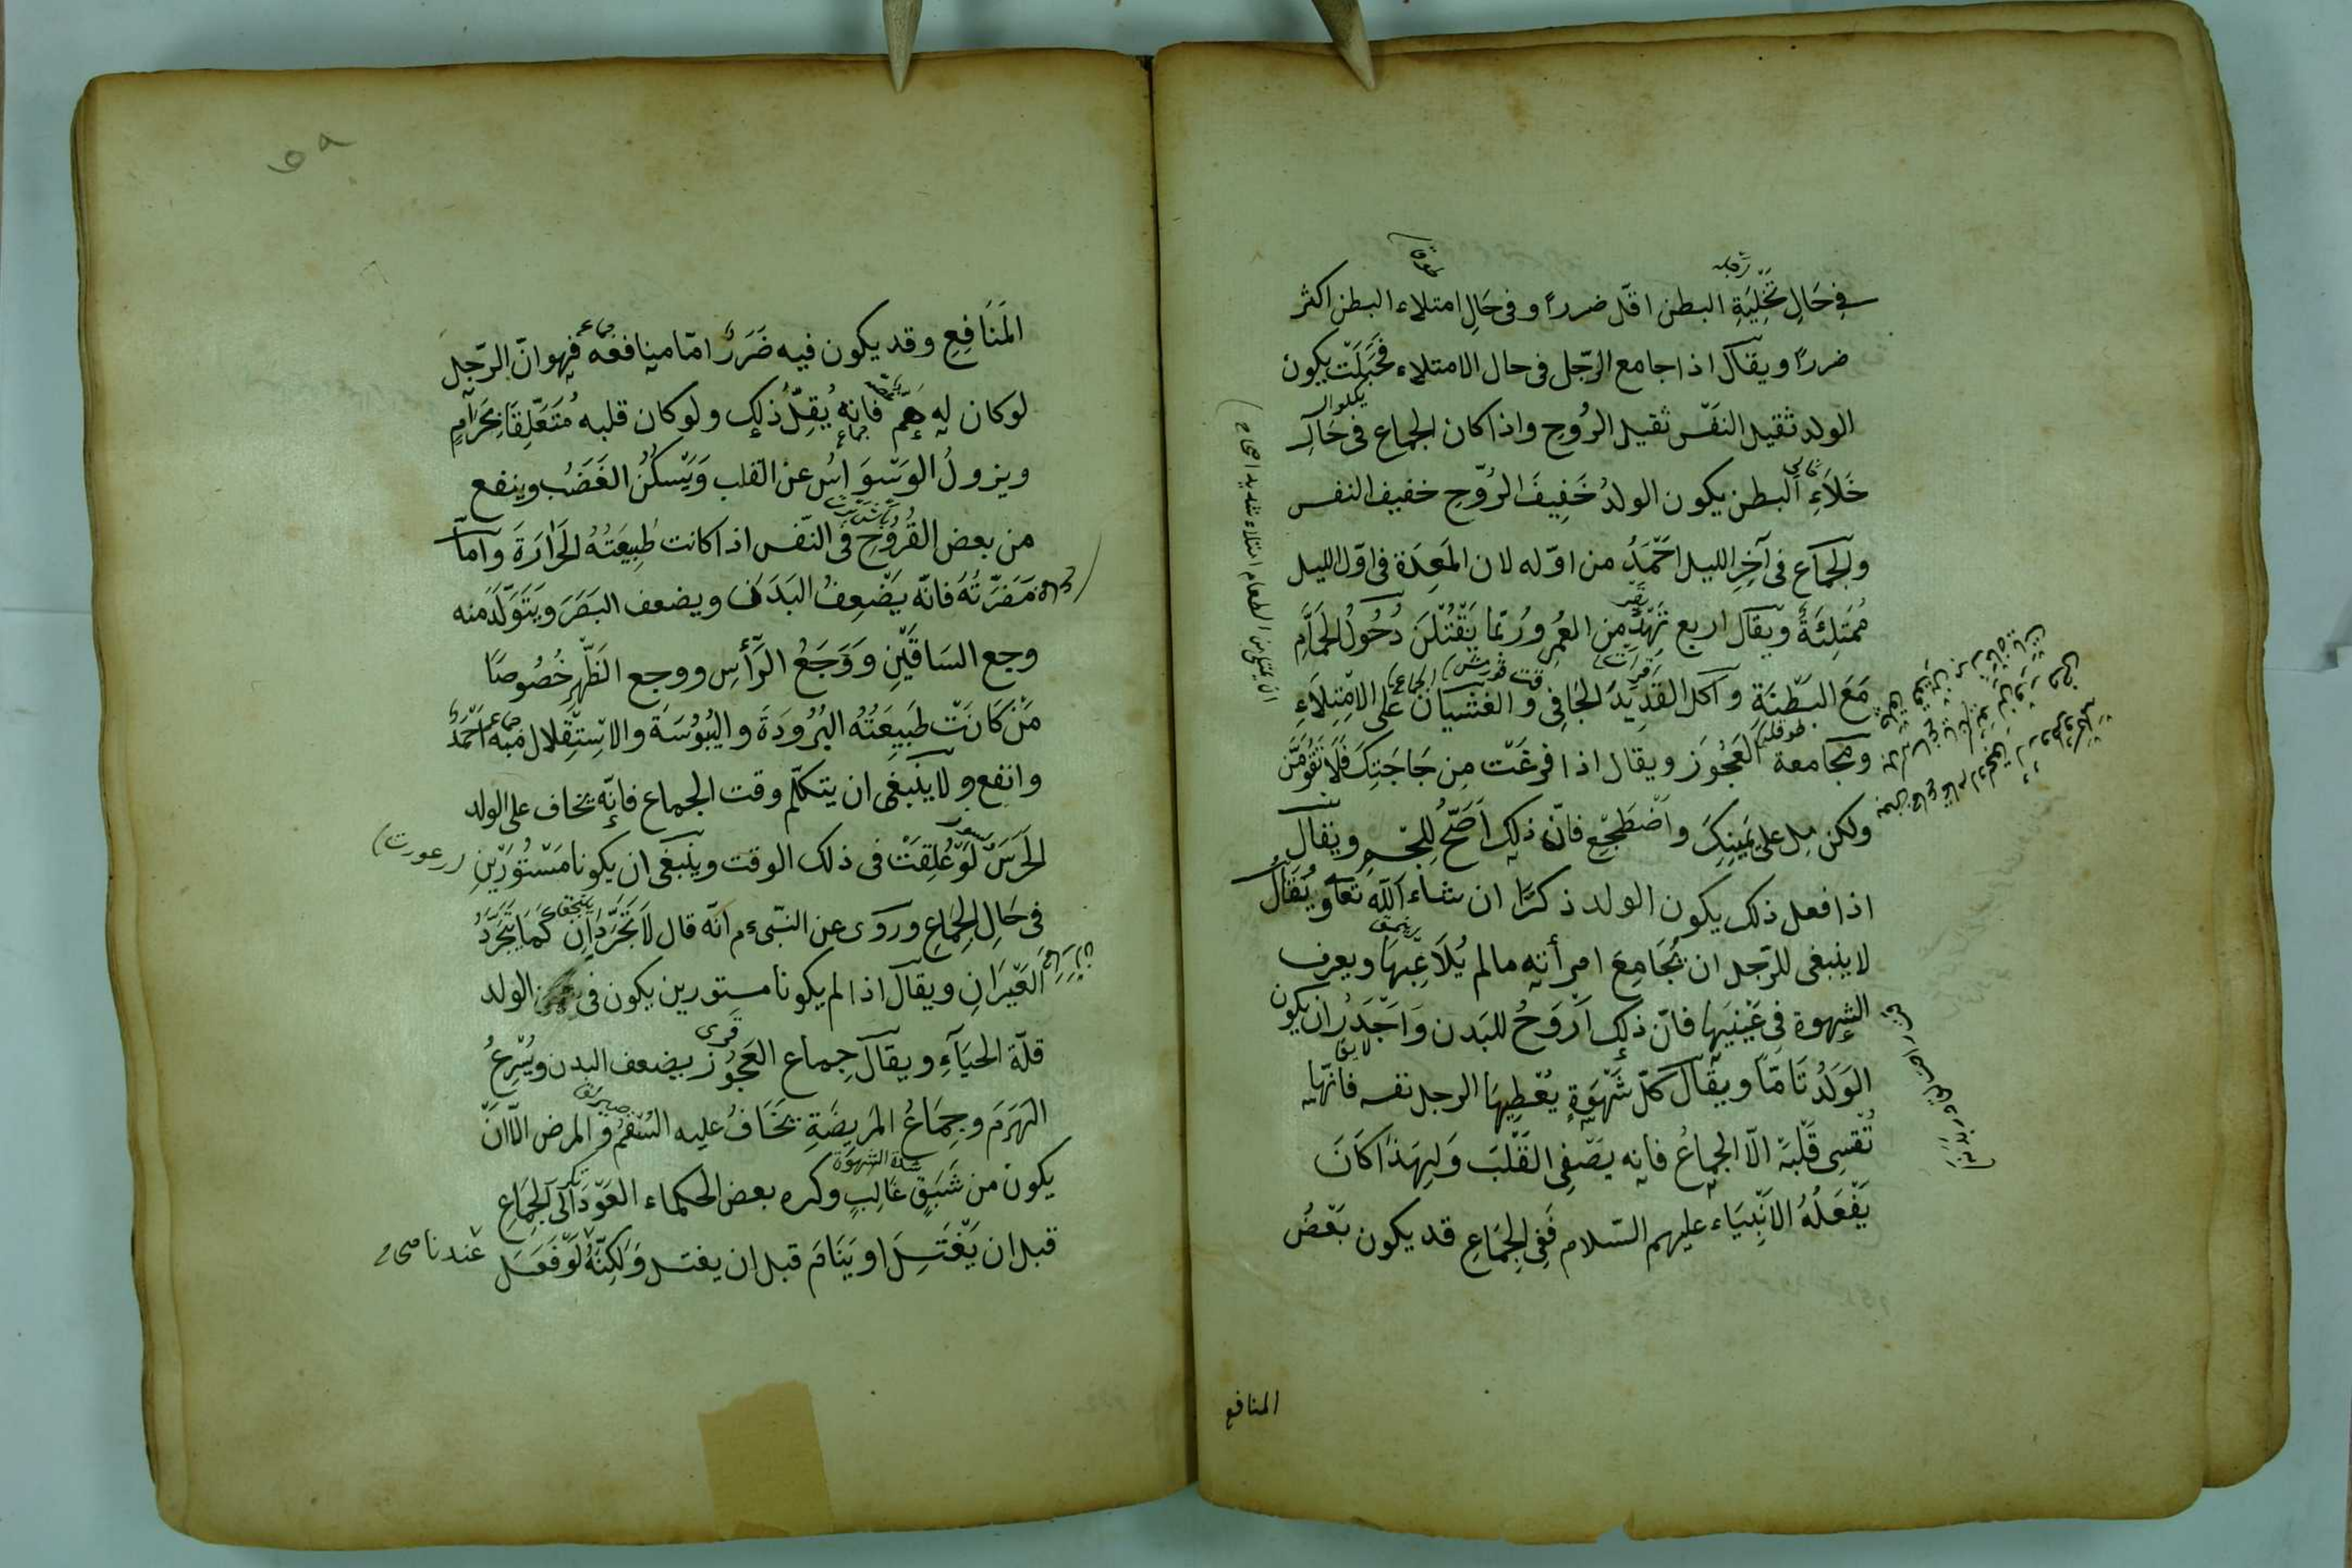 في حَالِ تَخْلِيَةِ البطن اقلّ ضرراً وفى حَالِ امتلاء البطن اكثر
ضررًا ويقال اذا جامع الرّجل فى حال الامتلاء فحَبَلَتْ يكون
الولد ثقيل النَفْس ثقيل الرُوحِ واذا كان الجماع فى حَالِ
خَلَاءِ البطن يكون الولدُ خَفِيفَ الرُوّحِ خفيف النفس
والجماع فى آخِرِ الليل اَحْمَدُ من اوّله لان المَعِدَة فى اوّل الليل
مُمتلِئَةً ويقال اربع تَهِدّ من العُمِر ورُبّما يَقْتُلْنَ دُخُولُ الحَمَّامِ
مَعَ البَطْنَةِ واكل القَدِيدَ الجَافِى والغشيان عَلَى الاِمْتِلَاءِ
ومجَامعة العَجُوز ويقال اذا فرغْت مِن حَاجَتِكَ فَلَا تَقُومَنَّ
ولكن مِل على يَمينِكَ واضْطَجِع فانّ ذلك اَصَحُّ لِلجسم ويقال
اذا فعل ذلك يكون الولد ذكرًا ان شاء الله تعا ويُقَالُ
لا ينبغى للرّجل ان يُجَامِعَ امرأته مالم يُلَاعِبهَا ويعرف
الشهوة فِى عَيْنَيها فانّ ذلك اَرْوَحُ للبَدن وَاَجْدَرُ ان يكون
الوَلَدُ تَامًّا ويقال كلّ شَهْوَةٍ يُعْطِيهَا الرجل نفسه فانّها
تُقسِى قَلْبَهُ الّا الجماعُ فانه يصَفِى القَلْبَ وَلِهَذا كَانَ
يَفْعَلُهُ الاَنْبِيَاء عليهم السّلام فَفِى الجِمَاعِ قد يكون بَعْضُ
المنافع
المَنَافِعِ وقد يكون فيه ضَرَرٌ امّا منافعُه فهو انّ الرّجل
لو كان له هَمّ فانه يُقِلُّ ذلك ولو كان قلبه مُتَعَلِّقَا بِحَرَامٍ
ويزولُ الوَسْوَاسُ عن القلب وَيَسْكُنُ الغَضَبُ وينفع
من بعض القُرُوحِ فى النّفس اذا كانت طَبِيعَتُهُ الحَرَارَةَ وامّا
مَضَرّتُهُ فانّه يَضْعِفُ البَدَنَ ويضعف البَصَرَ ويَتَوَلّدُ منه
وجع السَاقَيْنِ وَوَجَعُ الرَأسِ ووجع الظَهْرِ خُصُوصًا
مَنْ كَانَتْ طَبِيعَتُهُ البُرُودَةَ واليُبُوسَةَ والاِسْتِقْلال منه اَحْمَدُ
وانفع ولا ينبغى ان يتكلّم وقت الجماع فانّه يخاف على الولد
الخَرَسَ لَوْ عُلِقَتْ فى ذلك الوقت وينبغى ان يكونا مَسْتُورَيْنِ
(عورت)
فى حَالِ الجِمَاعِ ورَوَى عن النّبىء م انّه قال لَا يَتَجَرَّدَانِ كَمَا يَتَجَرَّدُ
العَيْرَانِ ويقال اذا لم يكونا مستورين يكون فى الولد
قلّة الحيَآءِ ويقال جماع العَجُوز يضعف البدن ويُسْرِعُ
الهَرَمَ وجِمَاعُ المَريضَةِ يَخَافُ عليه السُقْمُ والمرض الّا انَّ
يكون من شَبَقٍ غَالِبٍ وكره بعض الحكماء العَوْدَ اِلَى الجِمَاعِ
شدة الشهوة
قبل ان يَغْتَسِلَ او يَنَامَ قبل ان يغتسل وَلَكِنَّهُ لَوْ فَعَلَ